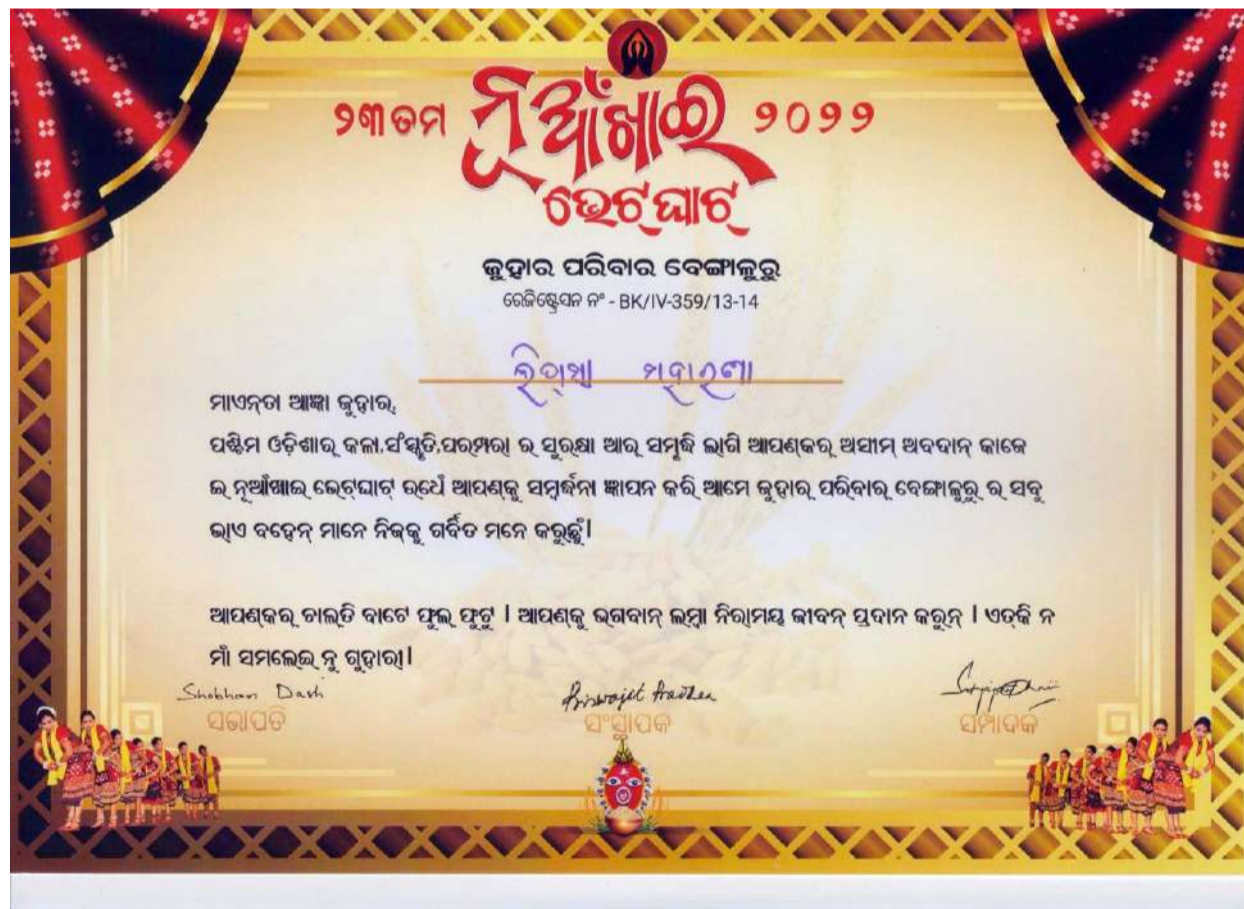 ୨୩ତମ ନୂଆଁଖାଇ ୨୦୨୨
ଭେଟ୍‌ଘାଟ୍
ଜୁହାର ପରିବାର ବେଙ୍ଗାଳୁରୁ
ରେଜିଷ୍ଟ୍ରେସନ ନଂ - BK/IV-359/13-14
ଲିପ୍ସା ମହାରଣା
ମାଏନ୍‌ତା ଆଜ୍ଞା ଜୁହାର୍,
ପଶ୍ଚିମ ଓଡ଼ିଶାର୍ କଳା,ସଂସ୍କୃତି,ପରମ୍ପରା ର ସୁରକ୍ଷା ଆର୍ ସମୃଦ୍ଧି ଲାଗି ଆପଣ୍‌କର୍ ଅସୀମ୍ ଅବଦାନ୍ କାଜେ
ଇ ନୂଆଁଖାଇ ଭେଟ୍‌ଘାଟ୍ ଉଧେଁ ଆପଣ୍‌କୁ ସମ୍ବର୍ଦ୍ଧନା ଜ୍ଞାପନ କରି ଆମେ ଜୁହାର୍ ପରିବାର୍ ବେଙ୍ଗାଳୁରୁ ର ସବୁ
ଭାଏ ବହେନ୍ ମାନେ ନିଜ୍‌କୁ ଗର୍ବିତ ମନେ କରୁଛୁଁ।
ଆପଣ୍‌କର୍ ଚାଲ୍‌ତି ବାଟେ ଫୁଲ୍ ଫୁଟୁ । ଆପଣ୍‌କୁ ଭଗବାନ୍ ଲମ୍ବା ନିରାମୟ ଜୀବନ୍ ପ୍ରଦାନ କରୁନ୍ । ଏତ୍‌କି ନ
ମାଁ ସମଲେଇ ନୁ ଗୁହାରୀ।
Shobhan Dash
ସଭାପତି
ସଂସ୍ଥାପକ
ସମ୍ପାଦକ